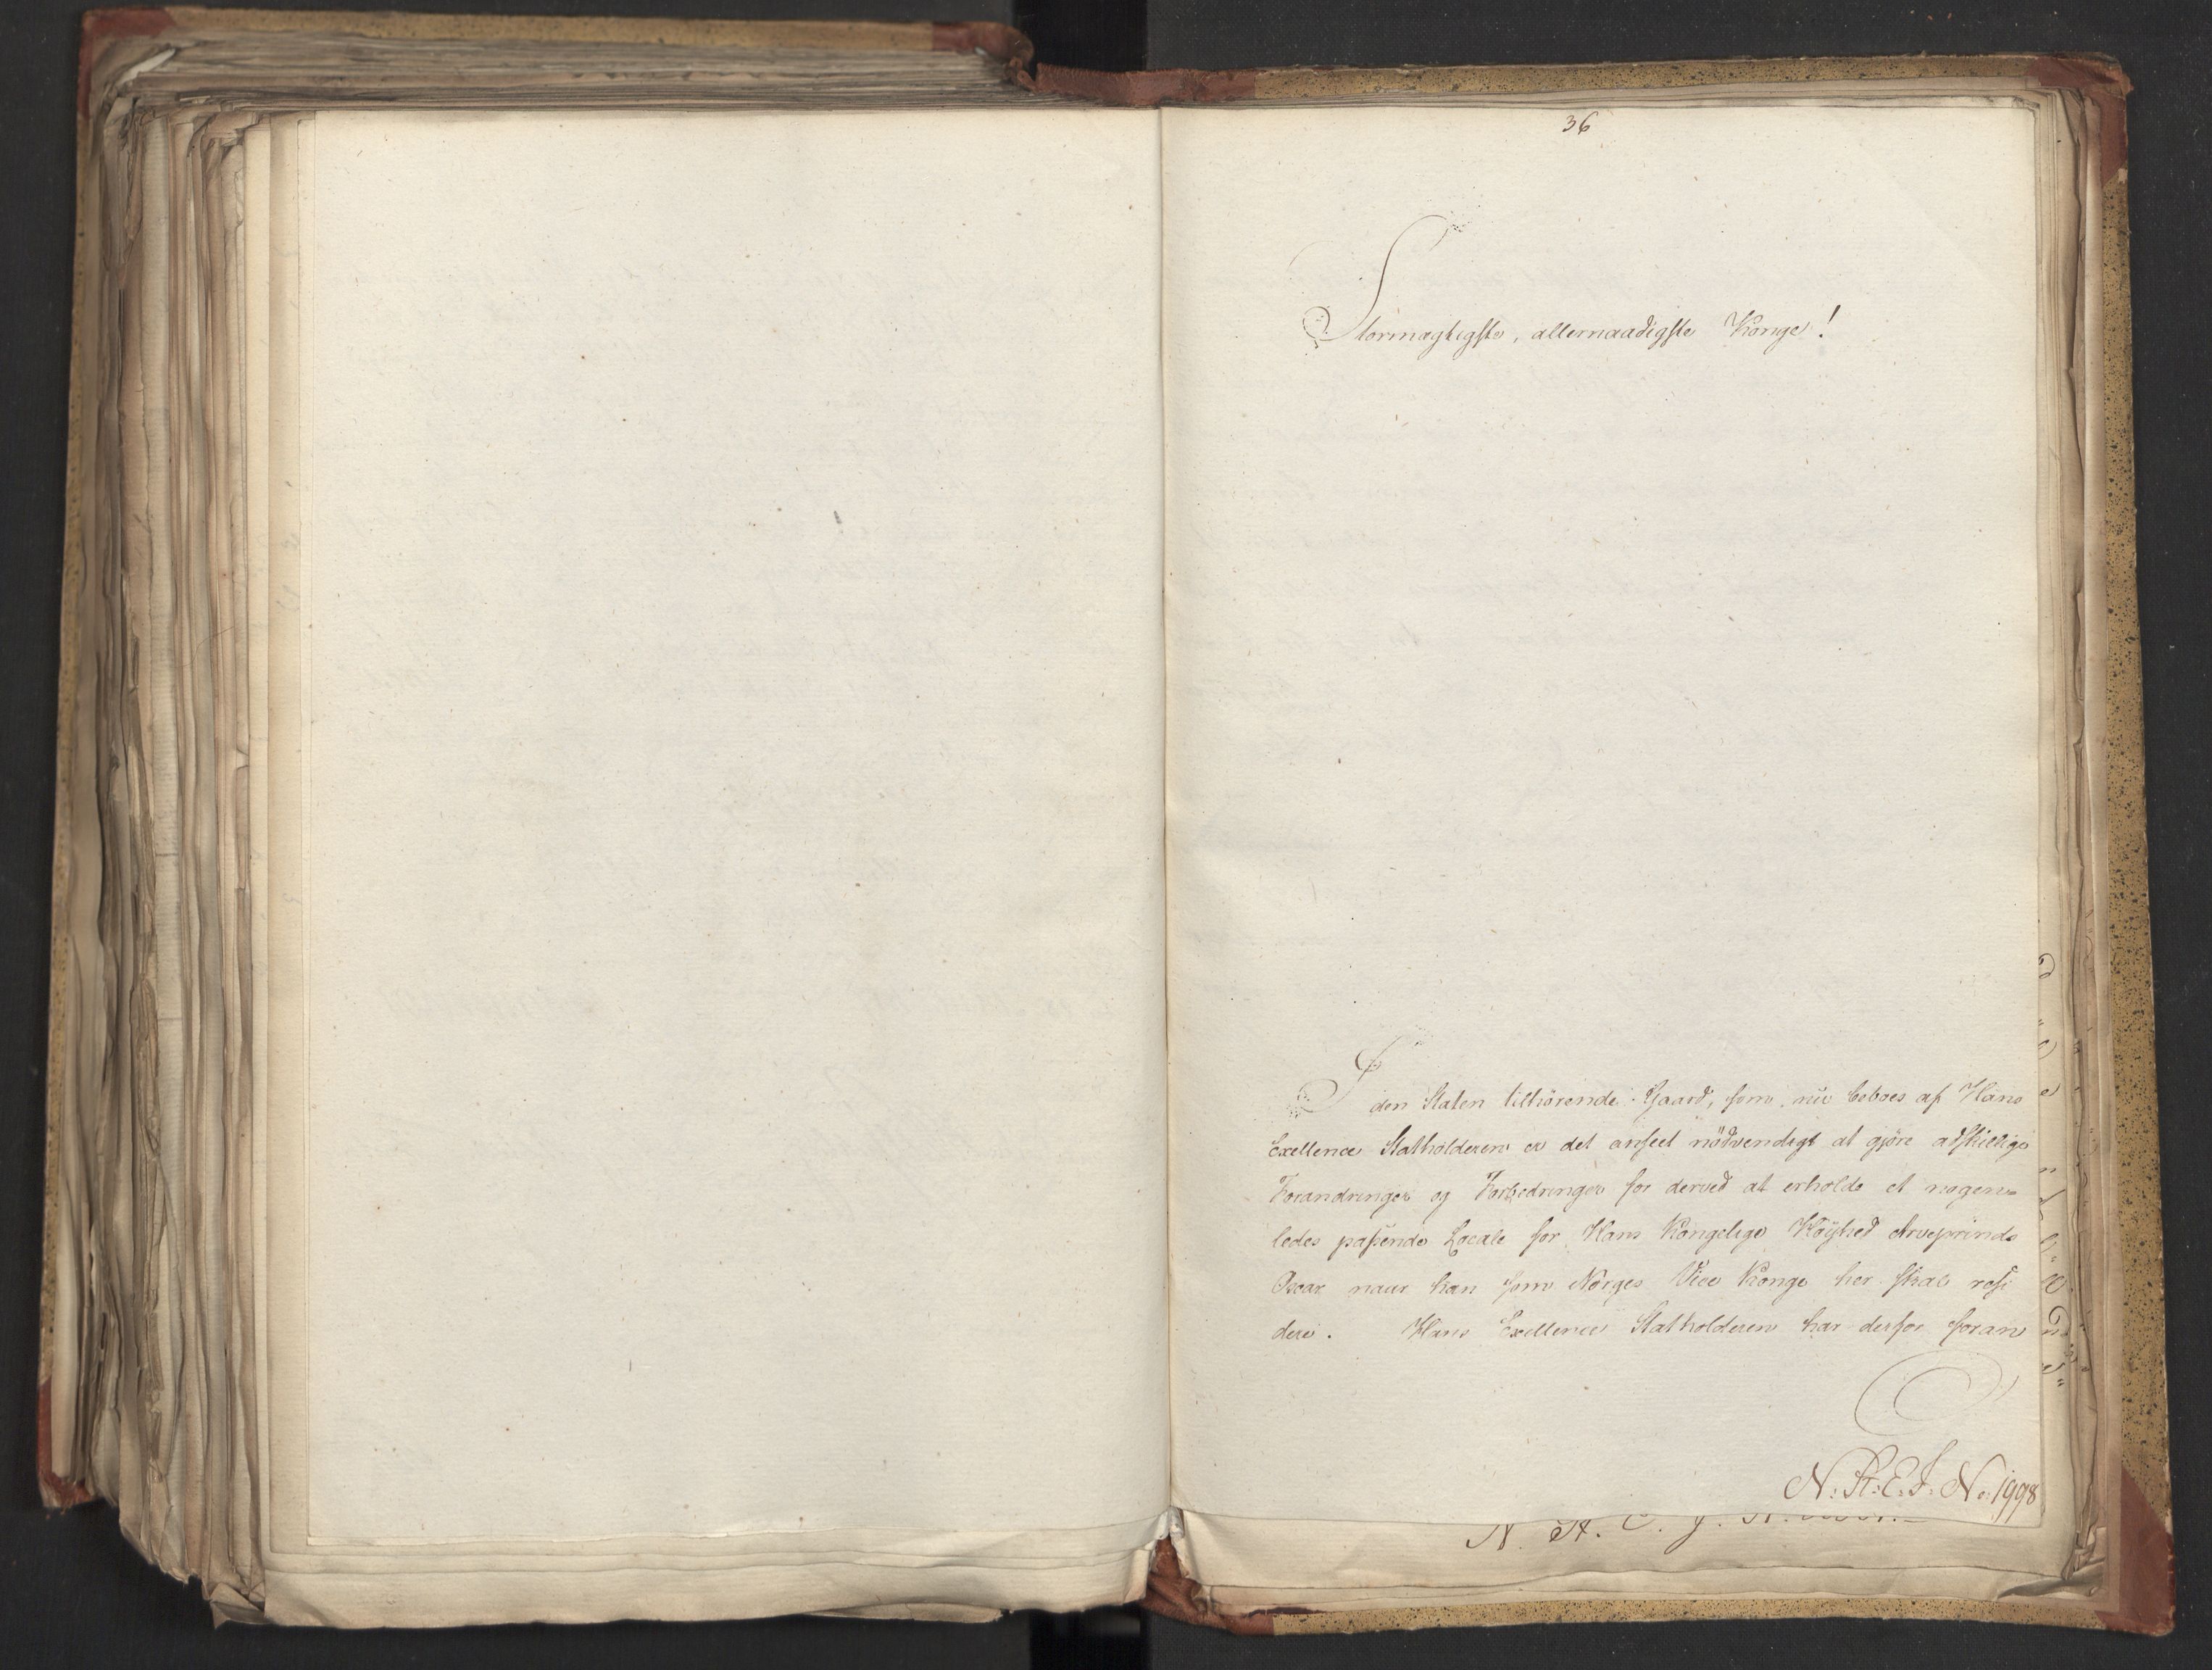 36
Stormægtigste, allernaadigste Konge!
I den Staten tilhörende Gaard, som nu beboes af Hans
Exellence Statholderen er det anseet nödvendigt at gjöre adskillige
Forandringer og Forbedringer for derved at erholde et nogen=
ledes passende Locale for Hans Kongelige Höÿhed Arveprinds
Oscar naar han som Norges Vice Konge her skal resi
dere. Hans Exellence Statholderen har derfor foran
N: R: E: J: No 1998